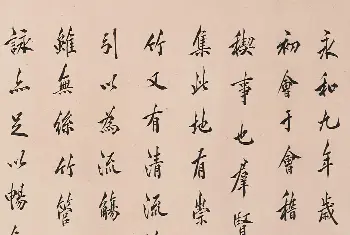 永和九年歲
初會于會稽
稧事也羣賢
集此地有崇
竹又有清流
引以為流觴
雖無絲竹管
詠亦足以暢